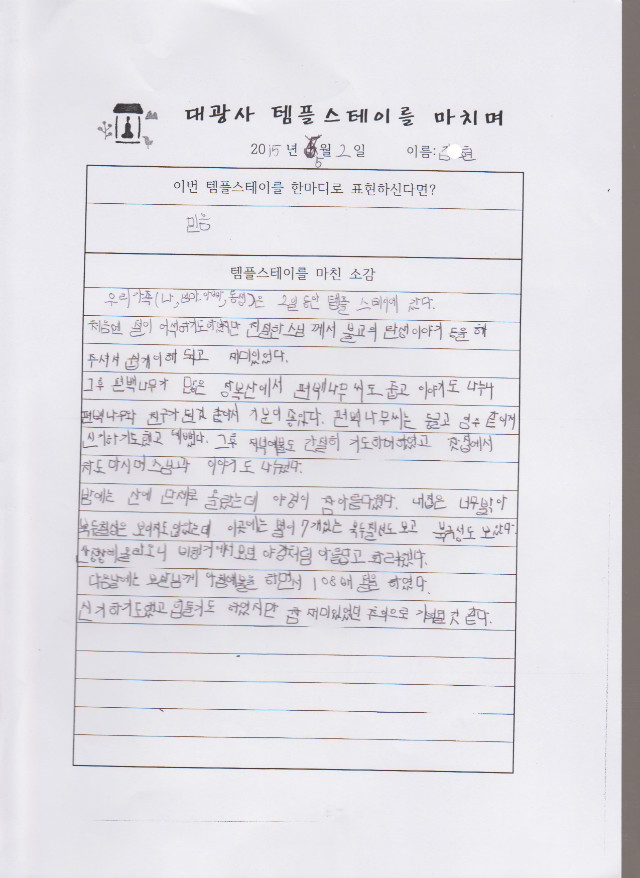 대광사 템플스테이를 마치며
2015년 5월 2일 이름: 현
이번 템플스테이를 한마디로 표현하신다면?
믿음
템플스테이를 마친 소감
우리가족(나, 엄마, 아빠, 동생)은 2일 동안 템플 스테이에 갔다.
처음엔 절이 어색하기도하였지만 친절한스님 께서 불교의 탄생이야기 등을 해
주셔서 쉽게이해 되고 재미있었다.
그후 편백나무가 많은 장복산에서 편백나무 씨도 줍고 이야기도 나누니
편백나무와 친구가 된것 같아서 기분이 좋았다. 편백나무씨는 둥글고 같은게
신기하기도했고 예뻤다. 그후 저녁예불도 간절히 기도하며하였고 찻집에서
차도마시며 스님과 이야기도 나누었다.
밤에는 산에 단체로 올랐는데 야경이 참아름다웠다. 내집은 너무밝아
북두칠성은 보이지도않았는데 이곳에는 별이 7개있는 북두칠성도보고 북극성도 보았다.
올라오니 비행기에서보던 야경처럼 아름답고 화려했다.
다음날에는 아침예불을 하면서 108배 를 하였다.
신기하기도했고 힘들기도 하였지만 참 재미있었던 추억으로 기억될 것 같다.